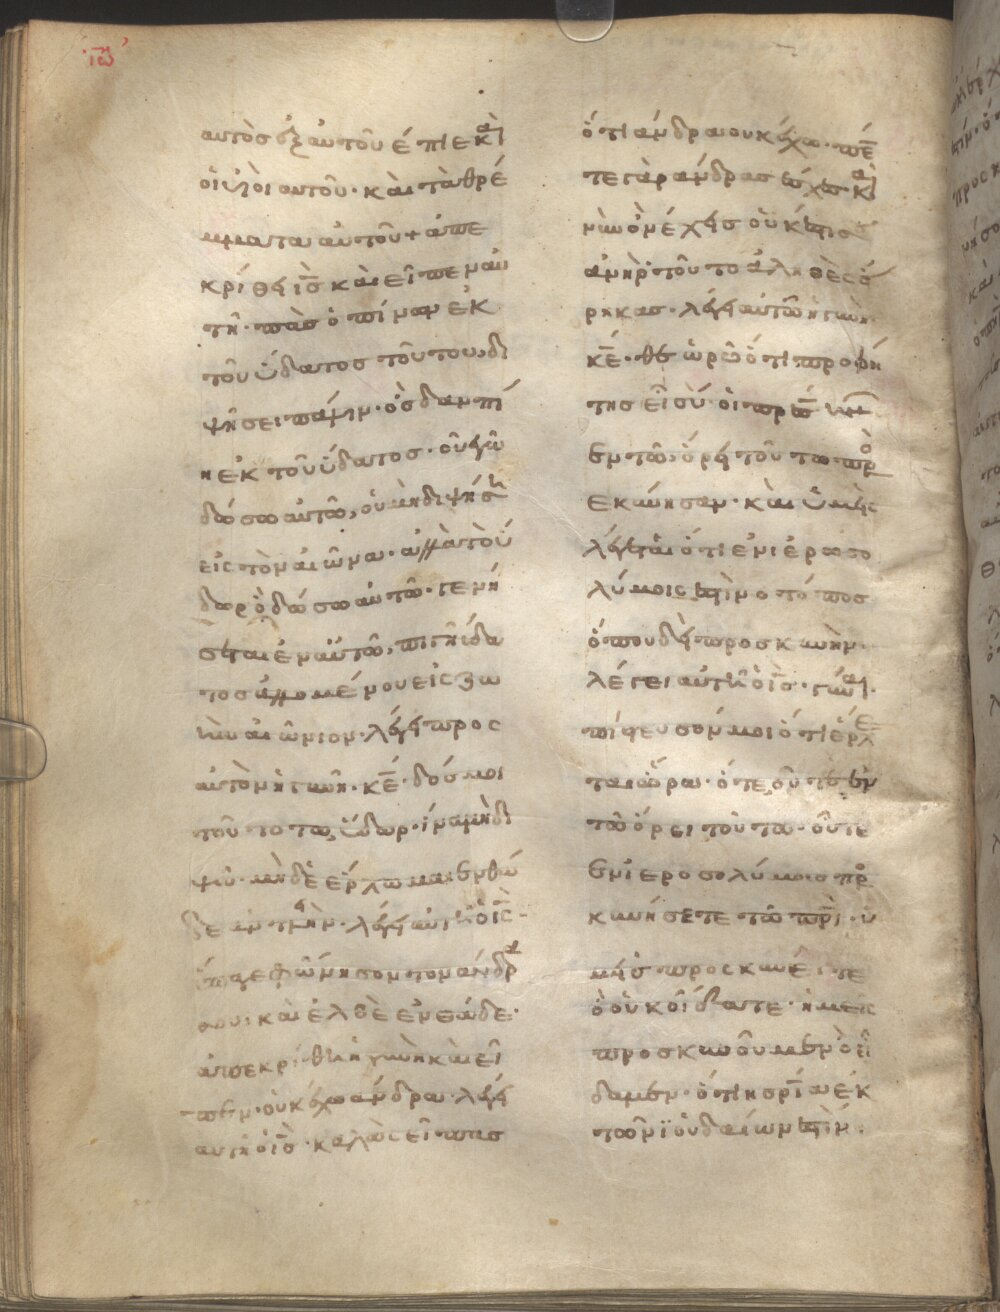 ἰω
αυτὸσ ἐξ αὐτοῦ ἔπιε κ̀αὶ
οἱ ὑϊοι αυτοῦ· και τὰ θρέ
μματα αὐτοῦ + ἀπε
κρίθη ις̅ και εἶπεν αὐ
τῆ· πᾶσ ὁ πίνων ἐκ
τοῦ ὕδατοσ τούτου, δι
ψήσει πάλιν· ὃσ δαν πί
η ἐκ τοῦ ὕδατοσ· οὗ ἐγὼ
δώσω αὐτῶ, οὐ μὴ διψήση
εἰς τὸν αιῶνα· ἀλλὰ τὸ ὕ
δωρ ὃ δώσω αὐτῶ· γενή
σεται ἐν αὐτῶ, πηγὴ ὕδα
τοσ ἁλλομένου εἰς ζω
ὴν αἰώνιον· λέγει προς
αὐτὸν ἡ γυνή· κε̅· δόσ μοι
τοῦτο τὸ ὕδωρ· ἵνα μὴ δι
ψῶ· μὴδὲ ἔρχωμαι ἐνθά
δε ἀντλεῖν· λέγει αὐτῆ ὁ ις̅·
ὕπαγε φώνησον τον ἄνδρα
σου· και ἐλθὲ ἐνθάδε·
ἀπεκρίθη ἡ γυνὴ και εἶ
πεν· οὐκ ἔχω ἄνδρα· λέγει
αυτῆ ὁ ις̅· καλῶς εἶπασ
ὅτι ἄνδρα ουκ ἔχω· πέν
τε γὰρ ἄνδρασ ἔσχεσ· καὶ
νῦν ὃν ἔχεισ οὐκ ἔστι σοῦ
ἀνήρ· τοῦτο ἀληθὲς εἴ
ρηκασ· λέγει αὐτῶ ἡ γυνή·
κε̅· θεωρῶ ὅτι προφή
τησ εἶ σύ· οἱ πρ̅ες ἡμῶν
ἐν τῶ ὄρει τούτω προ
σεκύνησαν· και ὑμεῖς
λέγεται ὅτι ἐν ιεροσο
λύμοις ἐστὶν ὁ τόποσ
ὅπου δεῖ προσκυνῆν·
λέγει αὐτῆ ὁ ις̅· γύναι·
πίστευσόν μοι ὅτι ἔρχε
ται ὥρα· ὅτε οὔτε ἐν
τῶ ὄρει τούτω· οὔτε
ἐν ιεροσολύμοισ προσ
κυνήσετε τῶ πρ̅ι· ὑ
μεῖσ προσκυνεῖτε
ὃ οὐκ οἴδατε· ἡμεῖς
προσκυνοῦμεν ὃ οἴ
δαμεν· ὅτι ἡ σρ̅ία ἐκ
τῶν ϊουδαίων ἐστίν·